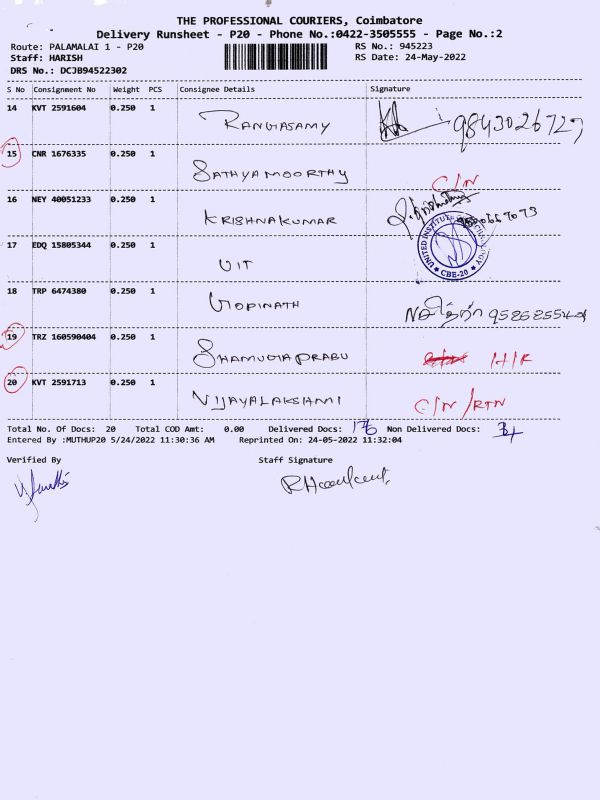 THE PROFESSIONAL COURIERS, Coimbatore
Delivery Runsheet - P20 - Phone No.:0422-3505555 - Page No.:2
Route: PALAMALAI 1 - P20 RS No.: 945223
Staff: HARISH RS Date: 24-May-2022
DRS No.: DCJB94522302
S No Consignment No Weight PCS Consignee Details Signature
14 KVT 2591604 0.250 1 RANGASAMY 9843026727
15 CNR 1676335 0.250 1 SATHYAMOORTHY C/N
16 NEY 40051233 0.250 1 KRISHNAKUMAR
17 EDQ 15805344 0.250 1 UIT
UNITED INSTITUTE OF TECHNOLOGY
CBE-20
18 TRP 6474380 0.250 1 GOPINATH
19 TRZ 160590404 0.250 1 SHAMUGAPRABU
20 KVT 2591713 0.250 1 VIJAYALAKSHMI C/N /RTN
Total No. Of Docs: 20 Total COD Amt: 0.00 Delivered Docs: Non Delivered Docs:
Entered By :MUTHUP20 5/24/2022 11:30:36 AM Reprinted On: 24-05-2022 11:32:04
Verified By Staff Signature